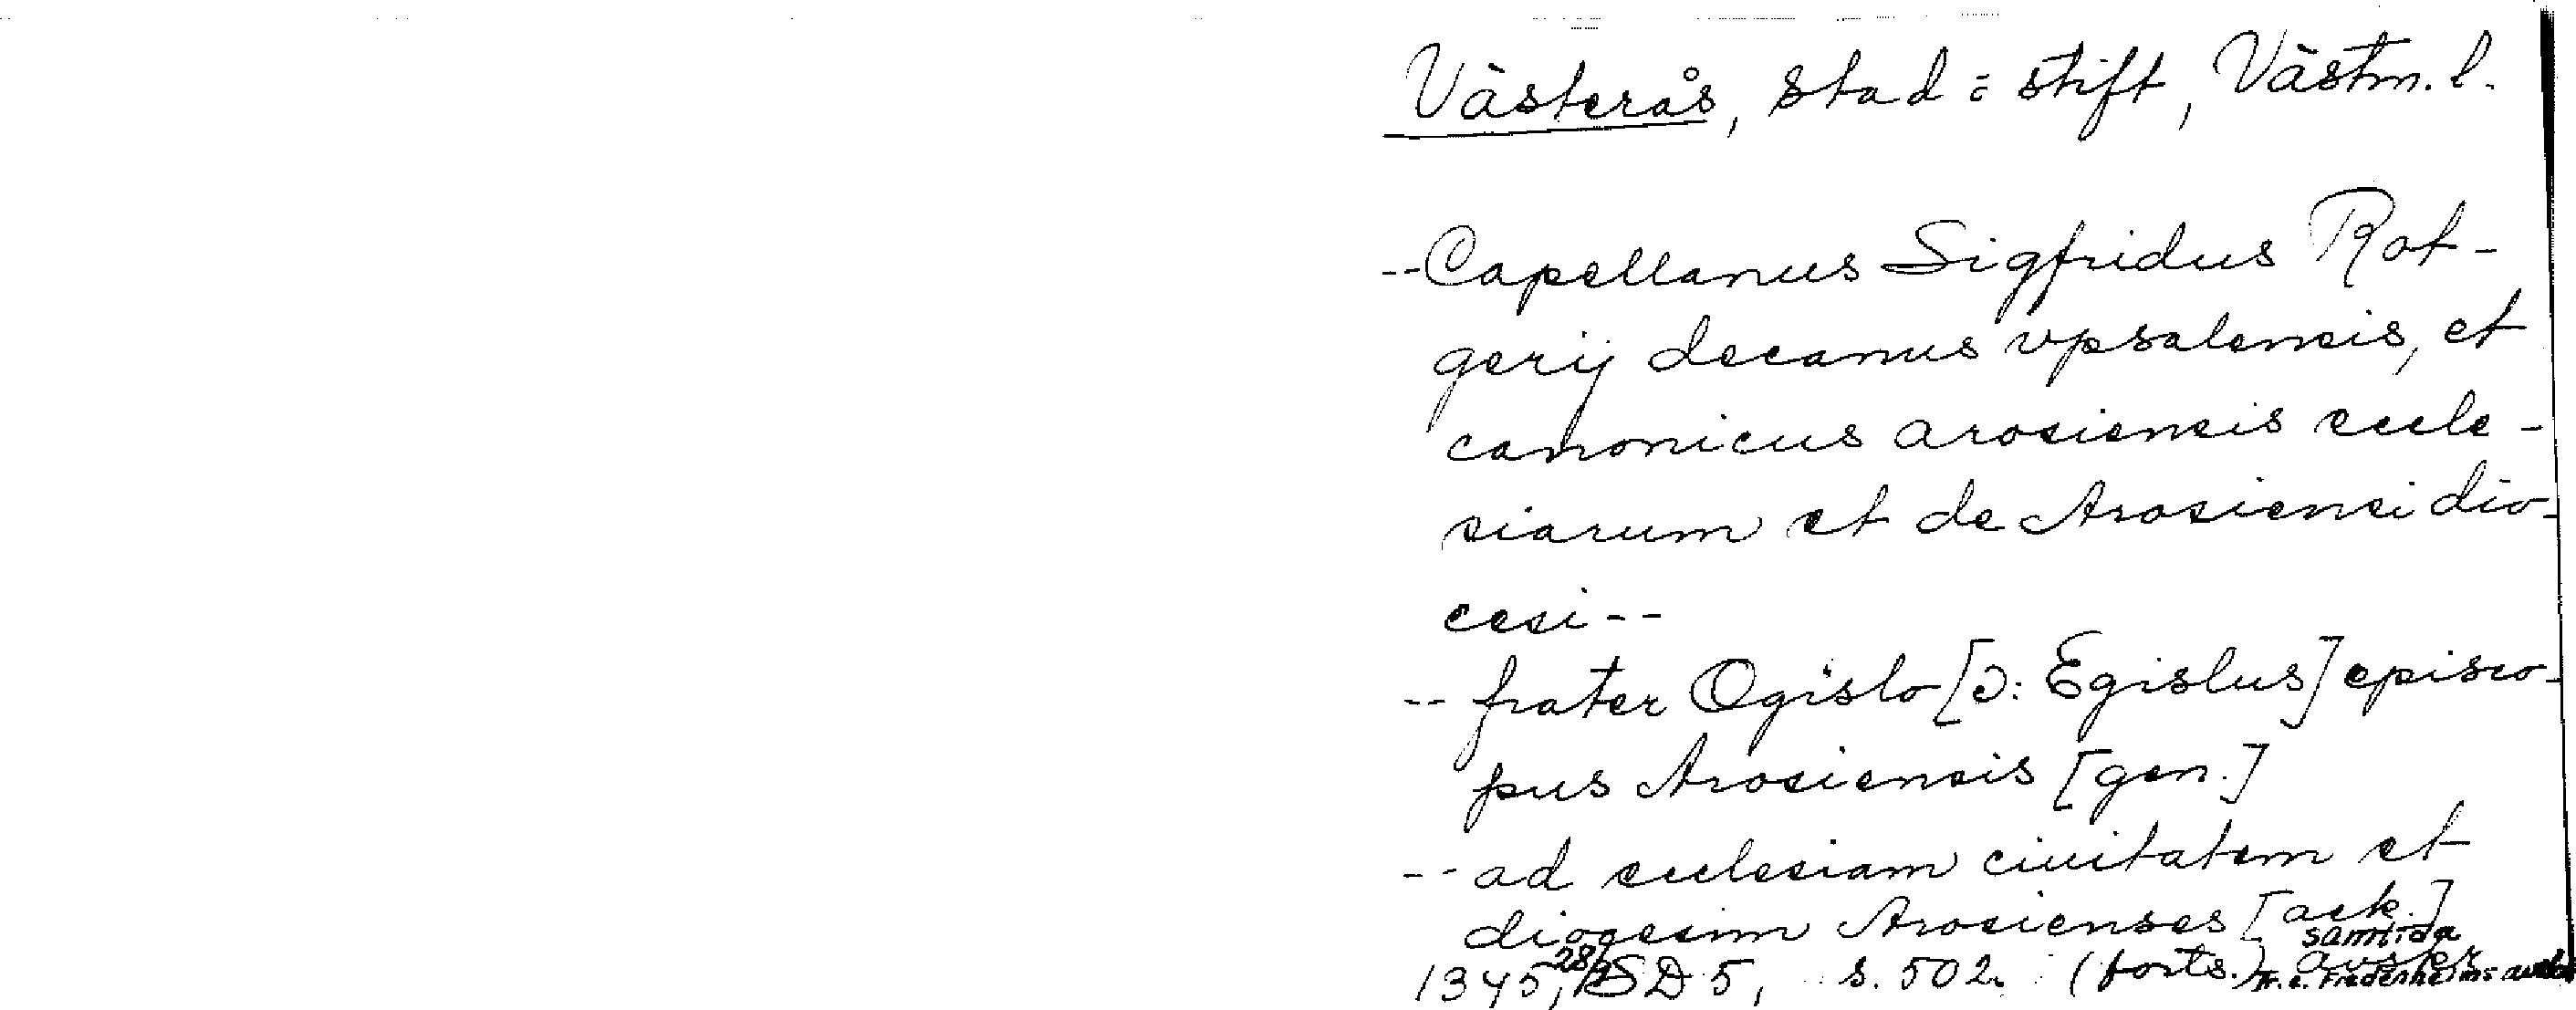 Västerås, stad o. stift, Västm. l.
-- Capellanus Sigfridus Rot-
gerij decanus vpsalensis, et
canonicus arosiensis eccle-
siarum et de Arosiensi dio-
cesi --
-- frater Ogislo [ɔ: Egislus] episco-
pus Arosiensis [gen.]
-- ad ecclesiam ciuitatem et
diocesim Arosienses [ack.]
1345, 28/9 SD 5, s. 502. (forts.) samtida avskr.